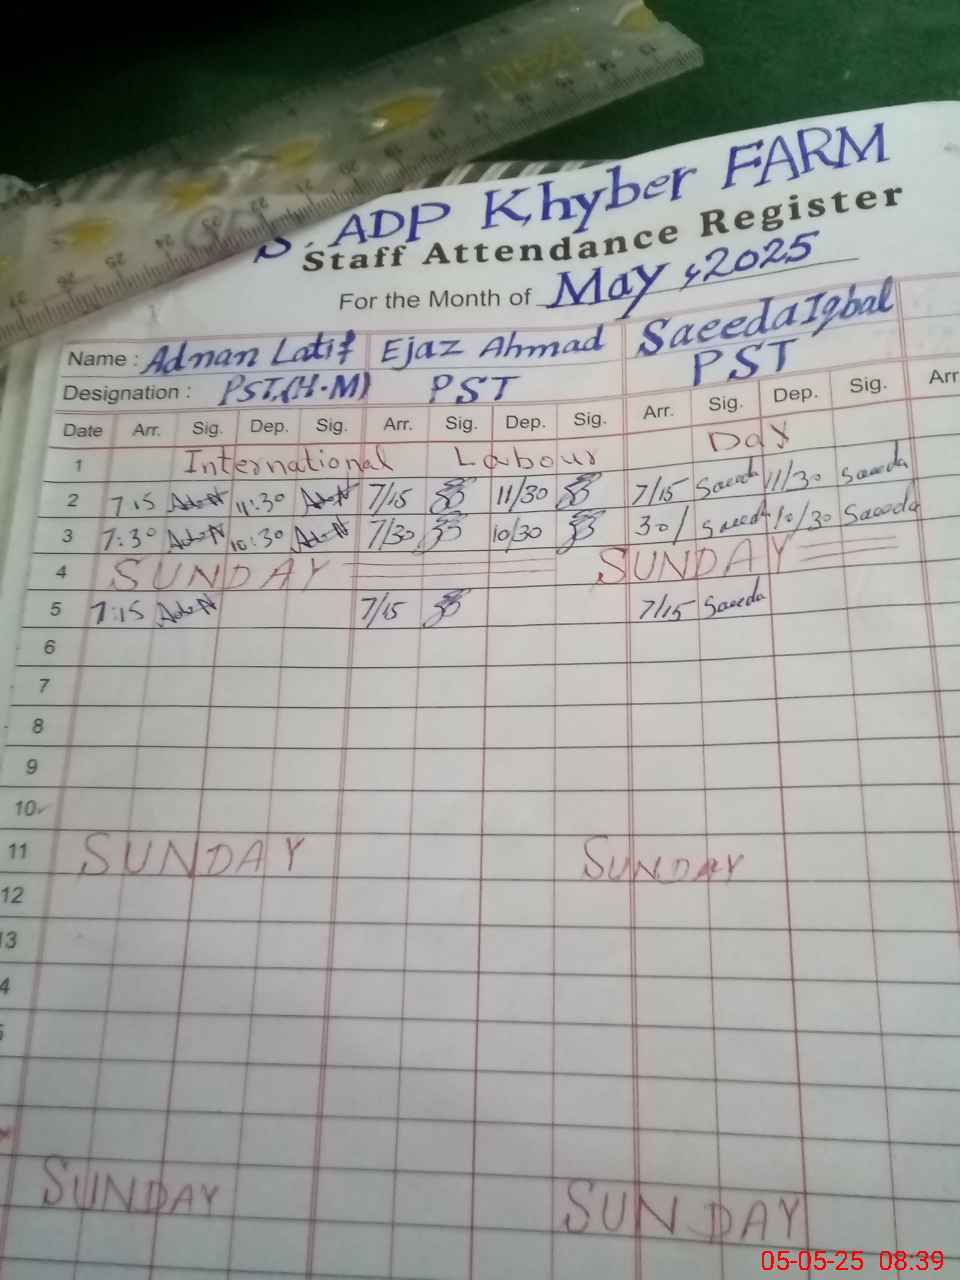 S. ADP Khyber FARM
Staff Attendance Register
For the Month of May, 2025
Name : Adnan Latif Ejaz Ahmad Saeeda Iqbal
Designation : PST.(H.M) PST PST
Date Arr. Sig. Dep. Sig. Arr. Sig. Dep. Sig. Arr. Sig. Dep. Sig. Arr
1 International Labour Day
2 7:15 11:30 7/15 11/30 7/15 Saeeda 11/30 Saeeda
3 7:30 10:30 7/30 10/30 30/ Saeeda 10/30 Saeeda
4 SUNDAY SUNDAY
5 7:15 7/15 7/15 Saeeda
6
7
8
9
10
11 SUNDAY SUNDAY
12
13
4
5
SUNDAY SUNDAY
05-05-25 08:39